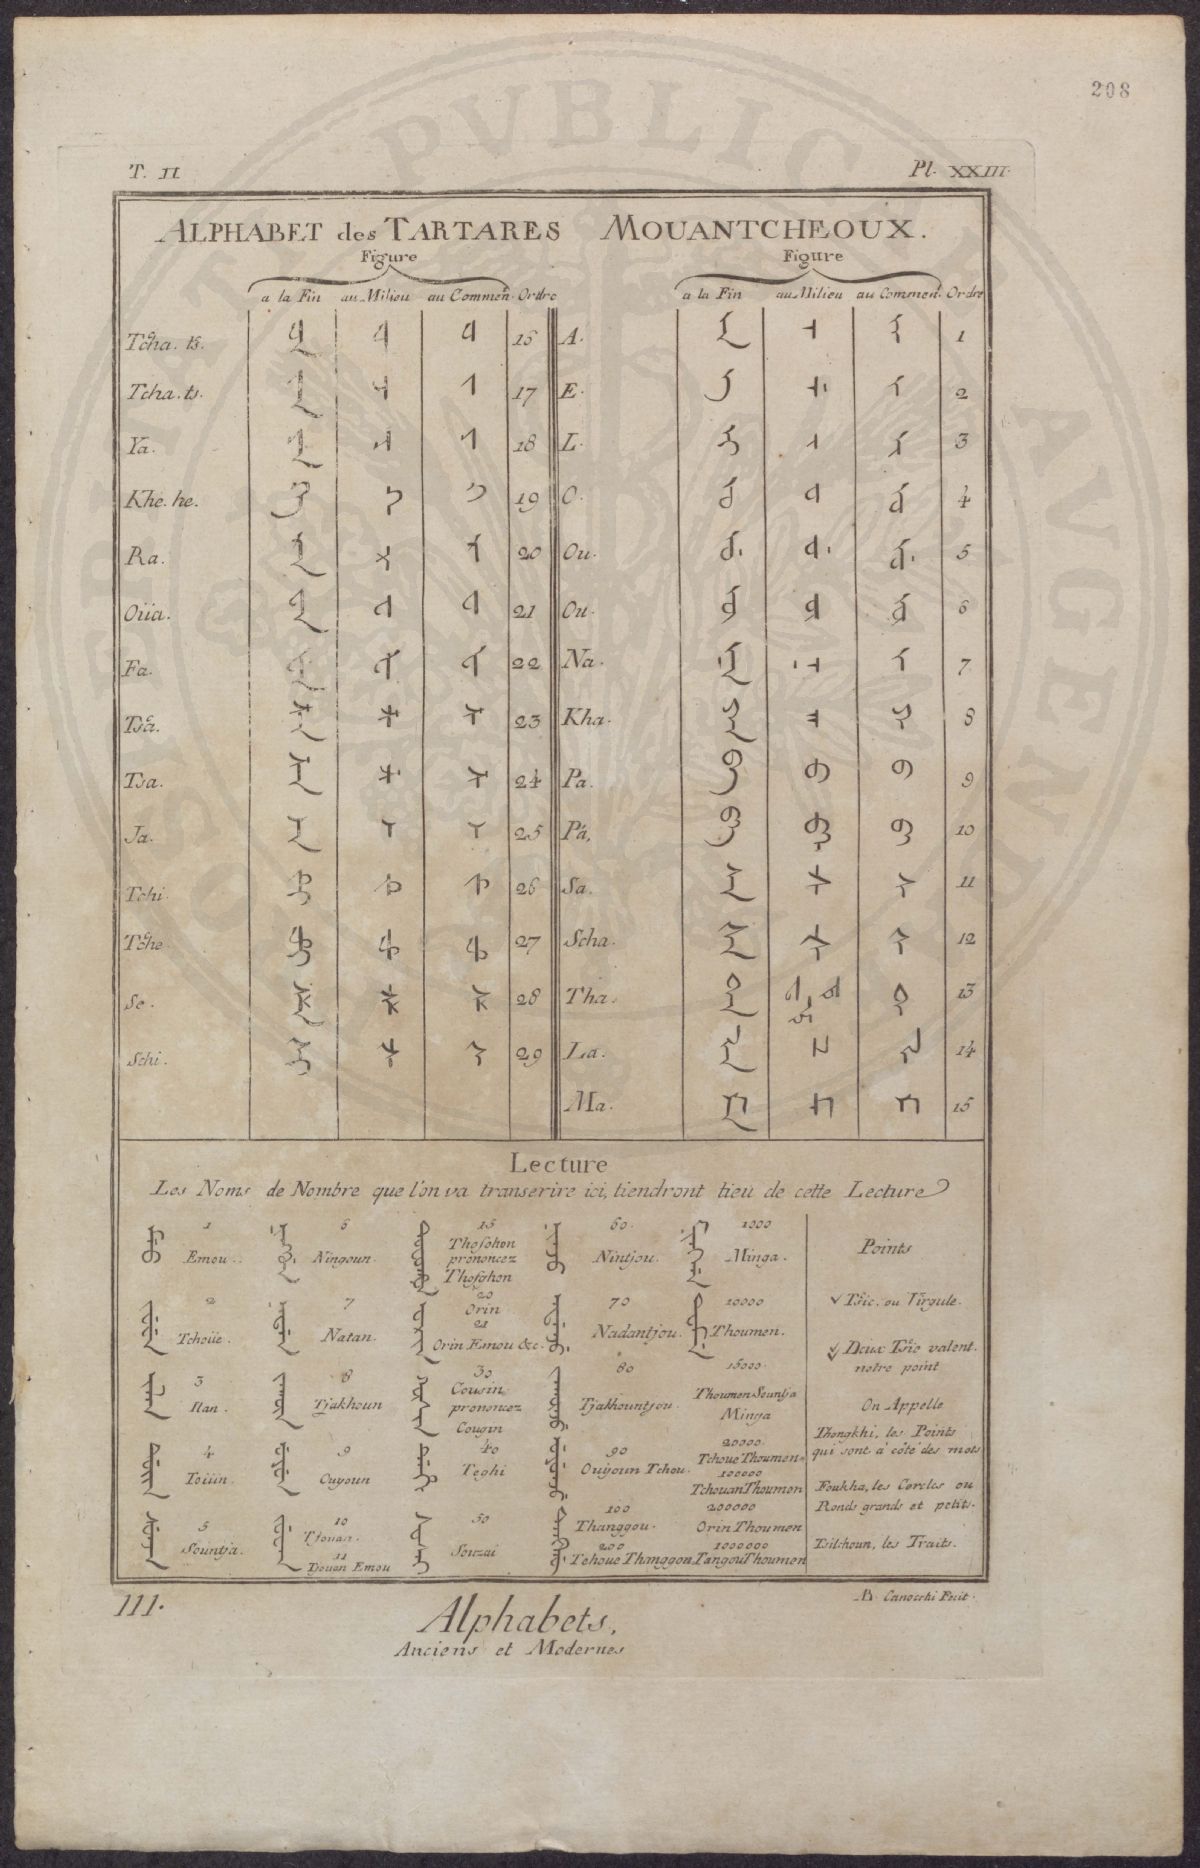 208
T. II
Pl. XXIII.
ALPHABET des TARTARES MOUANTCHEOUX.
Figure
a la Fin au Milieu au Commen. Ordre
Tcha. ts. 16
Tcha. ts. 17
Ya. 18
Khe. he. 19
Ra. 20
Oüa. 21
Fa. 22
Tsa. 23
Tsa. 24
Ja. 25
Tchi. 26
Tche 27
Se. 28
Schi. 29
Figure
a la Fin au Milieu au Commen. Ordre
A. 1
E. 2
L. 3
O. 4
Ou. 5
Ou. 6
Na. 7
Kha. 8
Pa. 9
Pá. 10
Sa. 11
Scha. 12
Tha. 13
La. 14
Ma. 15
Lecture
Les Noms de Nombre que l'on va transerire ici, tiendront lieu de cette Lecture
1
Emou.
2
Tchoüe.
3
Ilan.
4
Toüin.
5
Sountja.
6
Ningoun.
7
Natan.
8
Tjakhoun
9
Ouyoun
10
Tjouan.
11
Tjouan Emou
15
Thofohon
prononcez
Thofohon
20
Orin
21
Orin Emou &c.
30
Cousin
prononcez
Cougin
40
Teghi
50
Souzai
60.
Nintjou.
70
Nadantjou.
80
Tjakhountjou.
90
Ouyoun Tchou.
100
Thanggou.
200
Tchoue Thanggou
1000
Minga.
10000
Thoumen.
15000.
Thoumen Sountja
Minga
20000.
Tchoue Thoumen
100000
Tchouan Thoumen
200000
Orin Thoumen
1000000
Tangou Thoumen
Points
Tsic. ou Virgule.
Deux Tsic valent.
notre point
On Appelle
Thongkhi, les Points
qui sont à côté des mots
Foukha, les Cercles ou
Ronds grands et petits.
Tsilchoun, les Traits.
111.
Alphabets,
Anciens et Modernes
Canocchi Fecit.